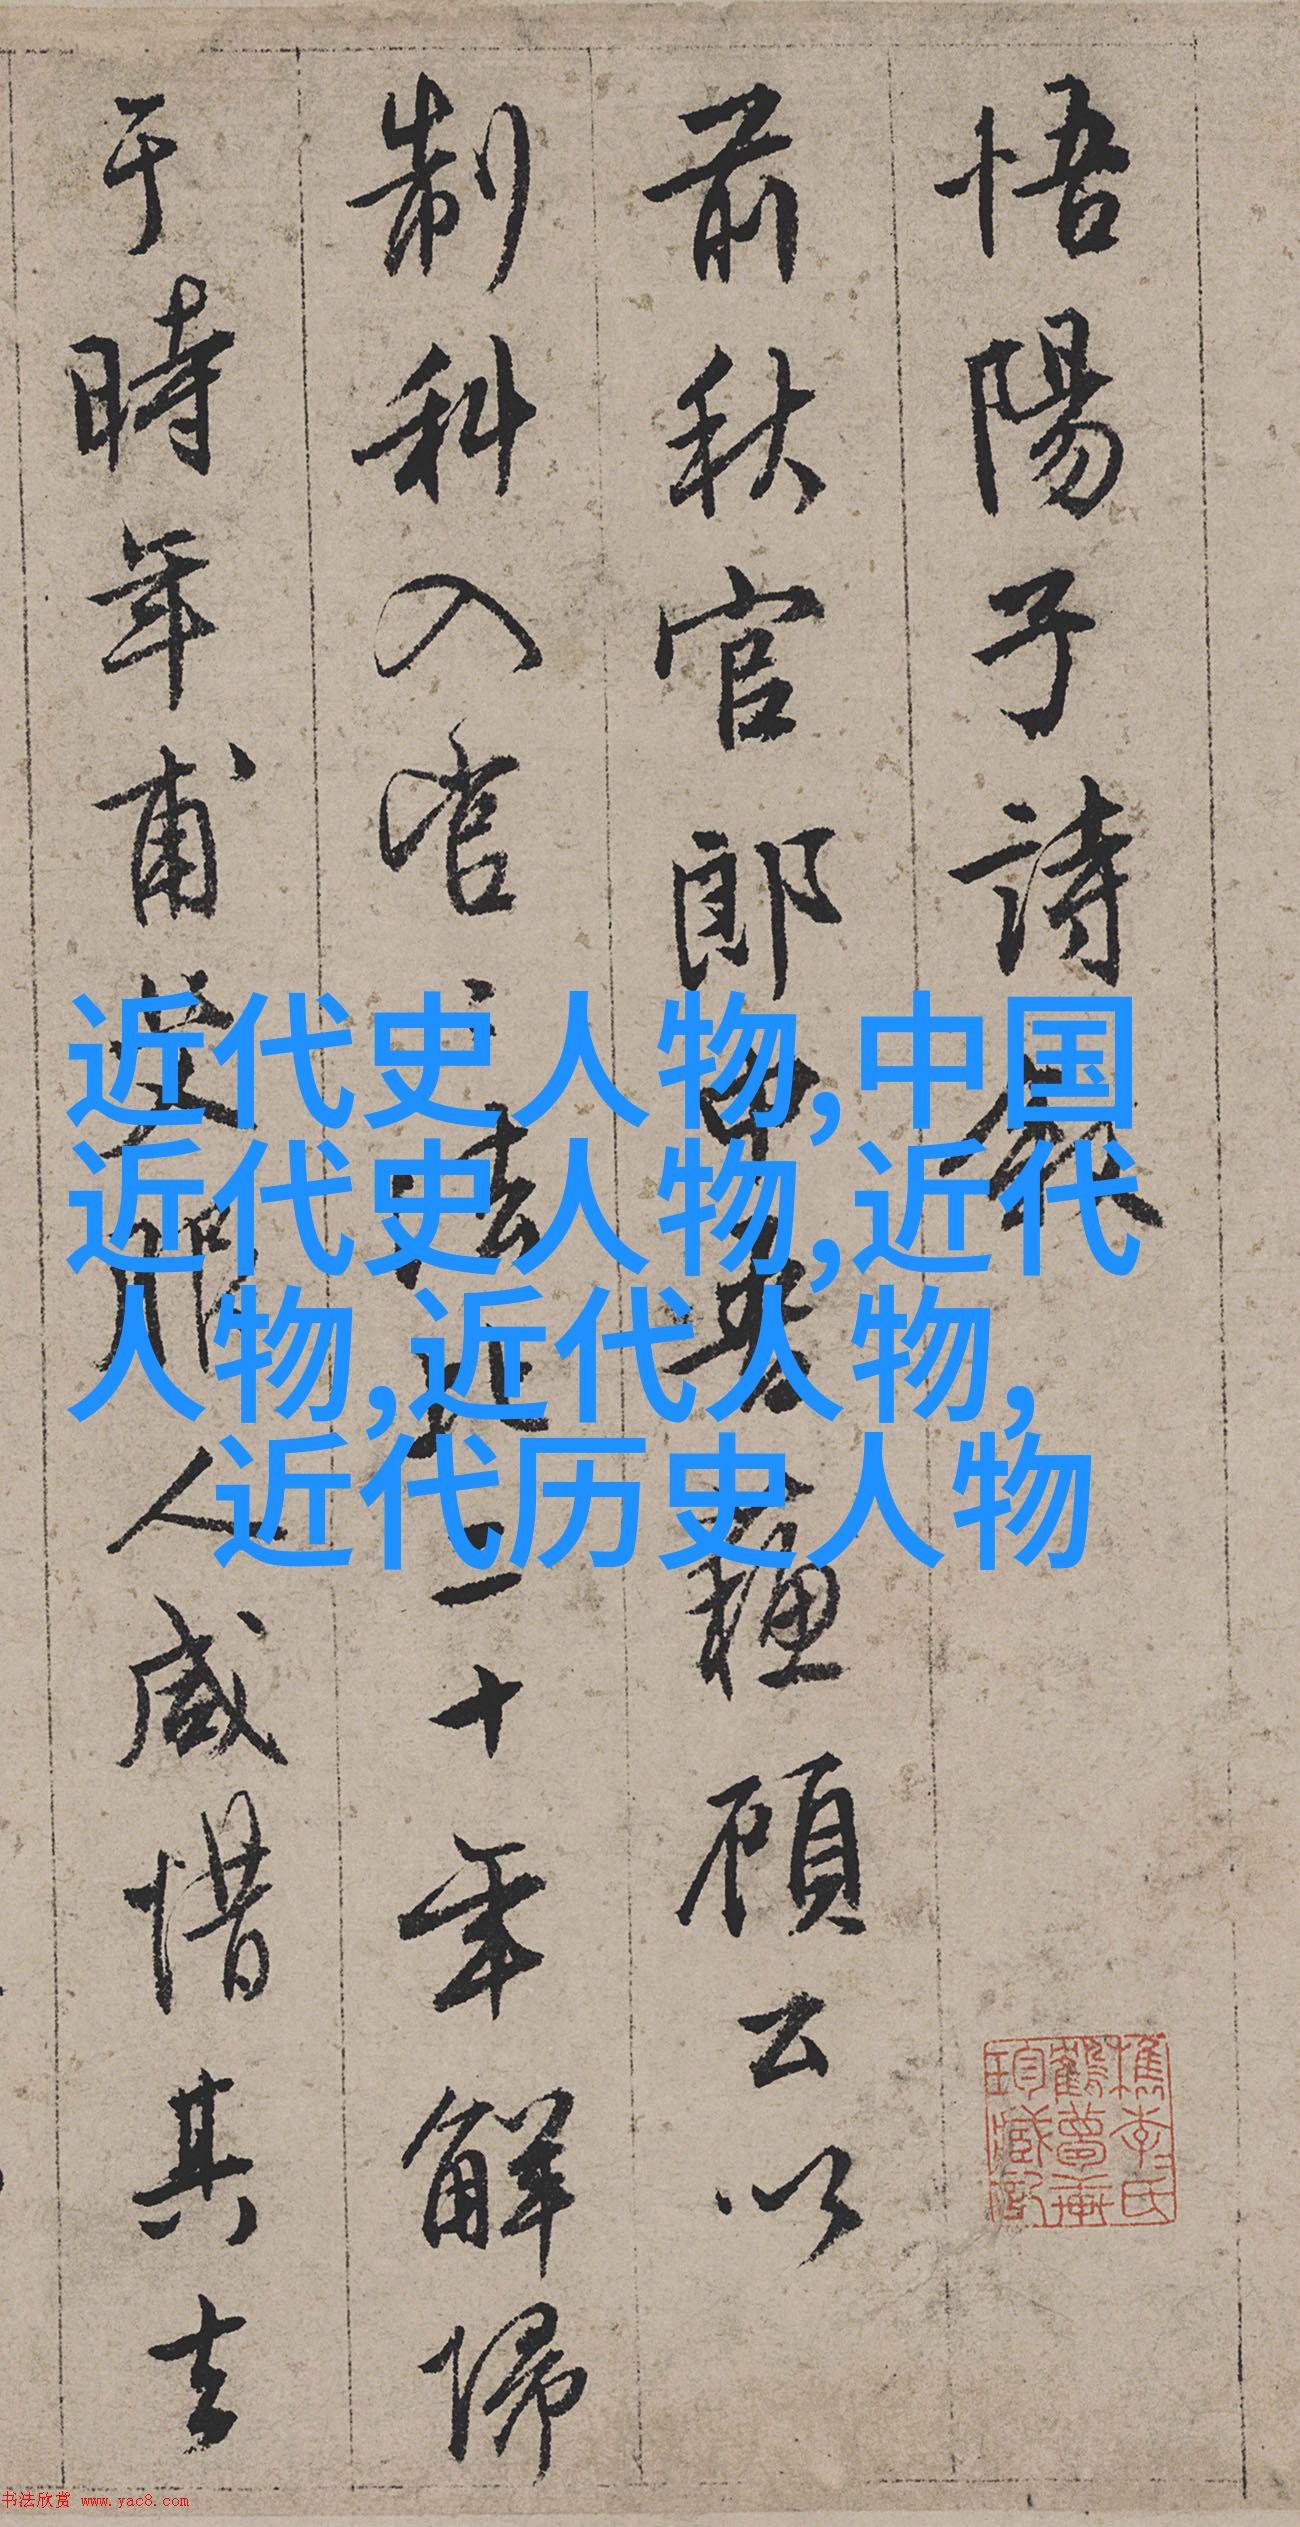 悟陽子詩敘
前秋官郎中吾蘇顧公以
制科入官
二十年解歸
于時年甫
人咸惜其去
近代史人物,中国
近代史人物,近代
人物,近代人物,
近代历史人物
书法欣赏 www.yac8.com